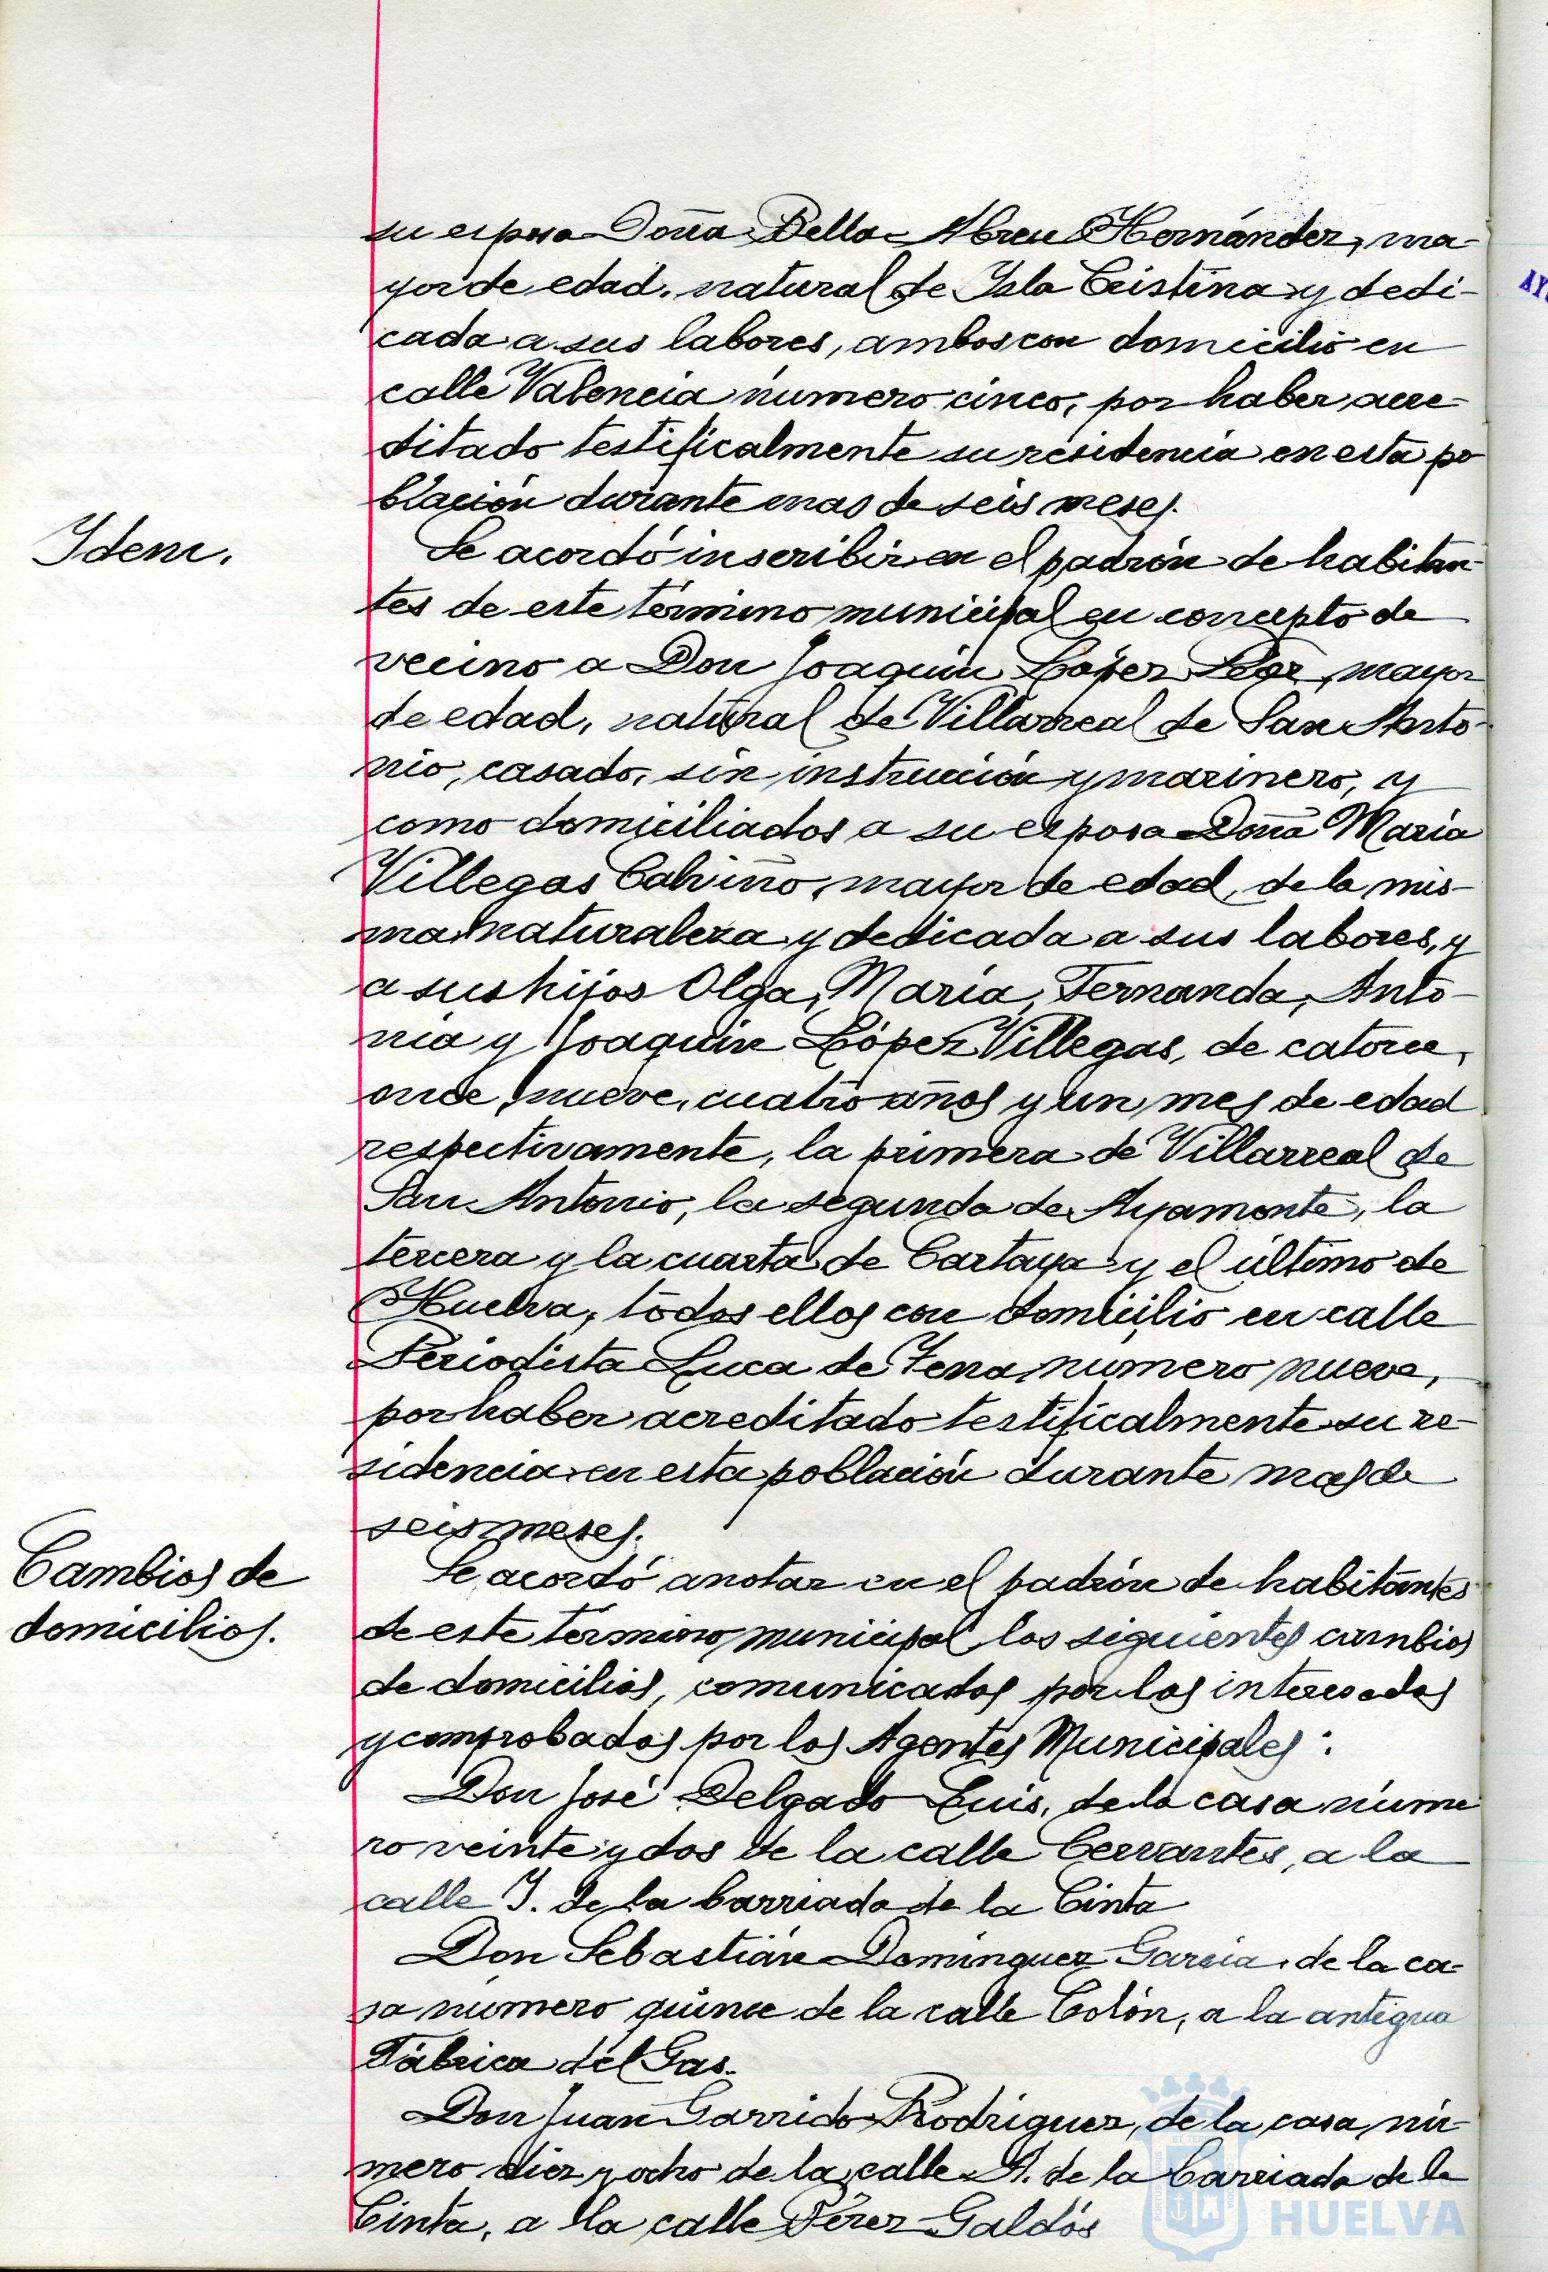 su esposa Doña Bella Abreu Hernández, ma-
yor de edad, natural de Isla Cristina y dedi-
cada a sus labores, ambos con domicilio en
calle Valencia número cinco, por haber acre-
ditado testificalmente su residencia en esta po
blación durante mas de seis meses.
Idem.
Se acordó inscribir en el padrón de habitan-
tes de este término municipal en concepto de
vecino a Don Joaquín López, mayor
de edad, natural de Villarreal de San Anto-
nio, casado, sin instrucción y marinero, y
como domiciliados a su esposa Doña María
Villegas Calviño, mayor de edad, de la mis-
ma naturaleza y dedicada a sus labores, y
a sus hijos Olga, María, Fernanda, Anto-
nia y Joaquín López Villegas, de catorce,
once, nueve, cuatro años y un mes de edad
respectivamente, la primera de Villarreal de
San Antonio, la segunda de Ayamonte, la
tercera y la cuarta de Cartaya y el último de
Huelva, todos ellos con domicilio en calle
Periodista Luca de Tena número nueve,
por haber acreditado testificalmente su re-
sidencia en esta población durante mas de
seis meses.
Cambios de
domicilios.
Se acordó anotar en el padrón de habitantes
de este término municipal los siguientes cambios
de domicilios, comunicados por los interesados
y comprobados por los Agentes Municipales:
Don José Delgado Luis, de la casa núme
ro veinte y dos de la calle Cervantes, a la
calle I. de la barriada de la Cinta
Don Sebastián Domínguez García, de la ca-
sa número quince de la calle Colón, a la antigua
Fábrica del Gas.
Don Juan Garrido Rodríguez, de la casa nú-
mero diez y ocho de la calle A. de la barriada de la
Cinta, a la calle Pérez Galdós
HUELVA